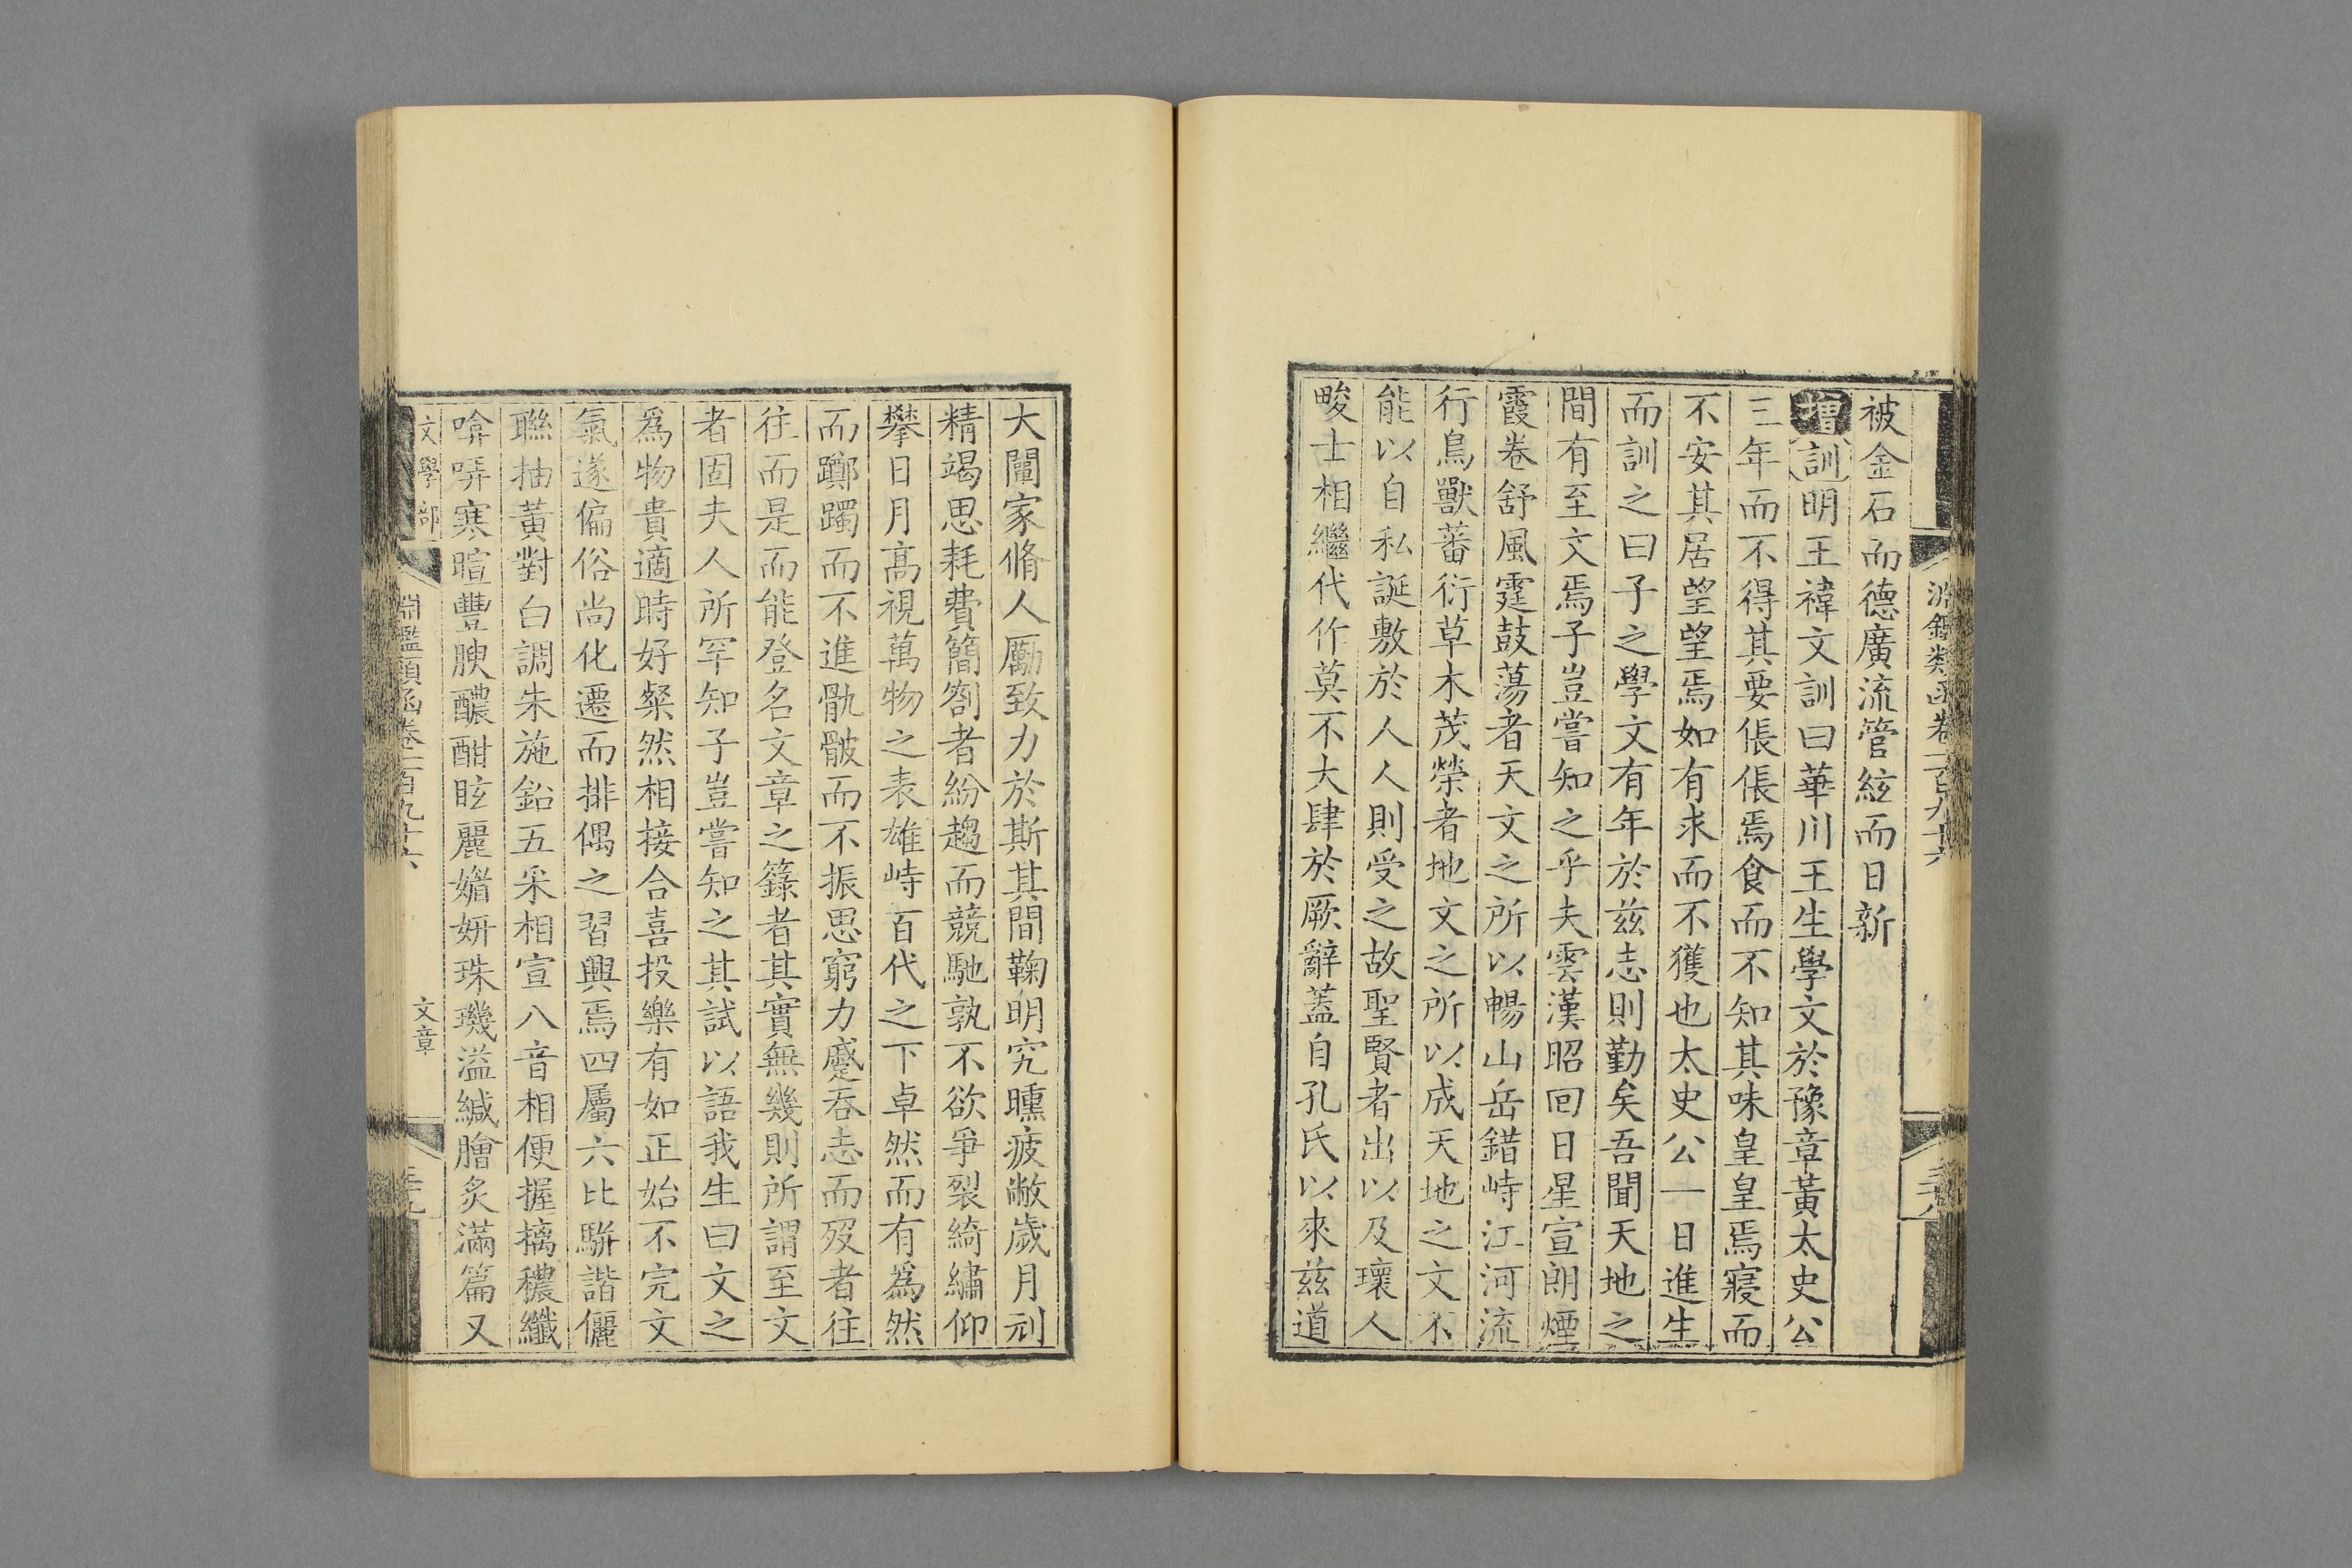 淵鑑類函卷一百九十六
三十八
被金石而德廣流管絃而日新
增訓明王禕文訓曰華川王生學文於豫章黃太史公
三年而不得其要倀倀焉食而不知其味皇皇焉寢而
不安其居望望焉如有求而不獲也太史公一日進生
而訓之曰子之學文有年於茲志則勤矣吾聞天地之
間有至文焉子豈嘗知之乎夫雲漢昭回日星宣朗煙
霞卷舒風霆鼓蕩者天文之所以暢山岳錯峙江河流
行鳥獸蕃衍草木茂榮者地文之所以成天地之文不
能以自私誕敷於人人則受之故聖賢者出以及瓌人
畯士相繼代作莫不大肆於厥辭蓋自孔氏以來茲道
大闡家脩人勵致力於斯其間鞠明究曛疲敝歲月刓
精竭思耗費簡劄者紛趨而競馳孰不欲爭裂綺繡仰
攀日月高視萬物之表雄峙百代之下卓然而有為然
而躑躅而不進骫骳而不振思窮力蹙吞志而歿者往
往而是而能登名文章之籙者其實無幾則所謂至文
者固夫人所罕知子豈嘗知之其試以語我生曰文之
為物貴適時好粲然相接合喜投樂有如正始不完文
氣遂偏俗尚化遷而排偶之習興焉四屬六比駢諧儷
聯抽黃對白調朱施鉛五采相宣八音相便握摛穠纖
唅哢寒暄豐腴醲酣眩麗媚妍珠璣溢緘膾炙滿篇又
文學部
淵鑑類函卷一百九十六
文章
三十九